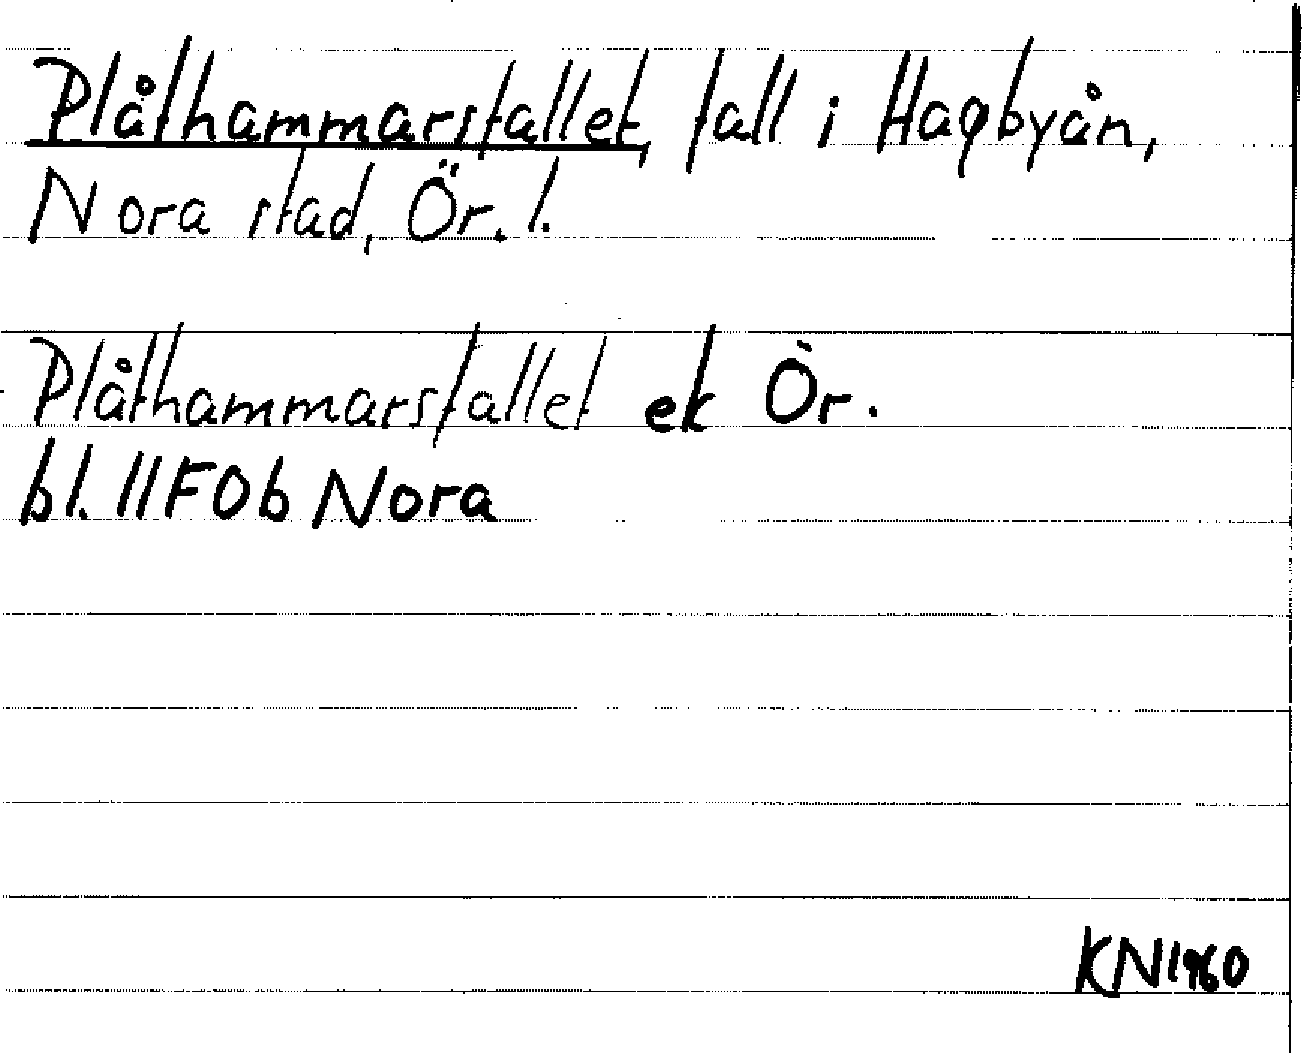 Plåthammarsfallet, fall i Hagbyån,
Nora stad, Ör. l.
Plåthammarsfallet ek Ör.
bl. 11F0b Nora
KN1960